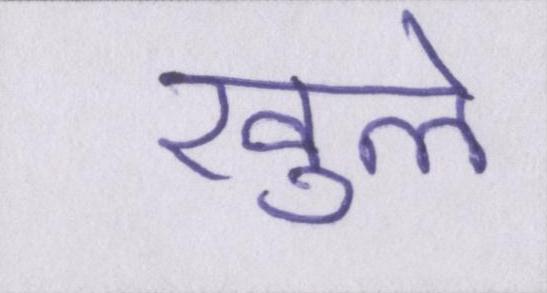 खुले